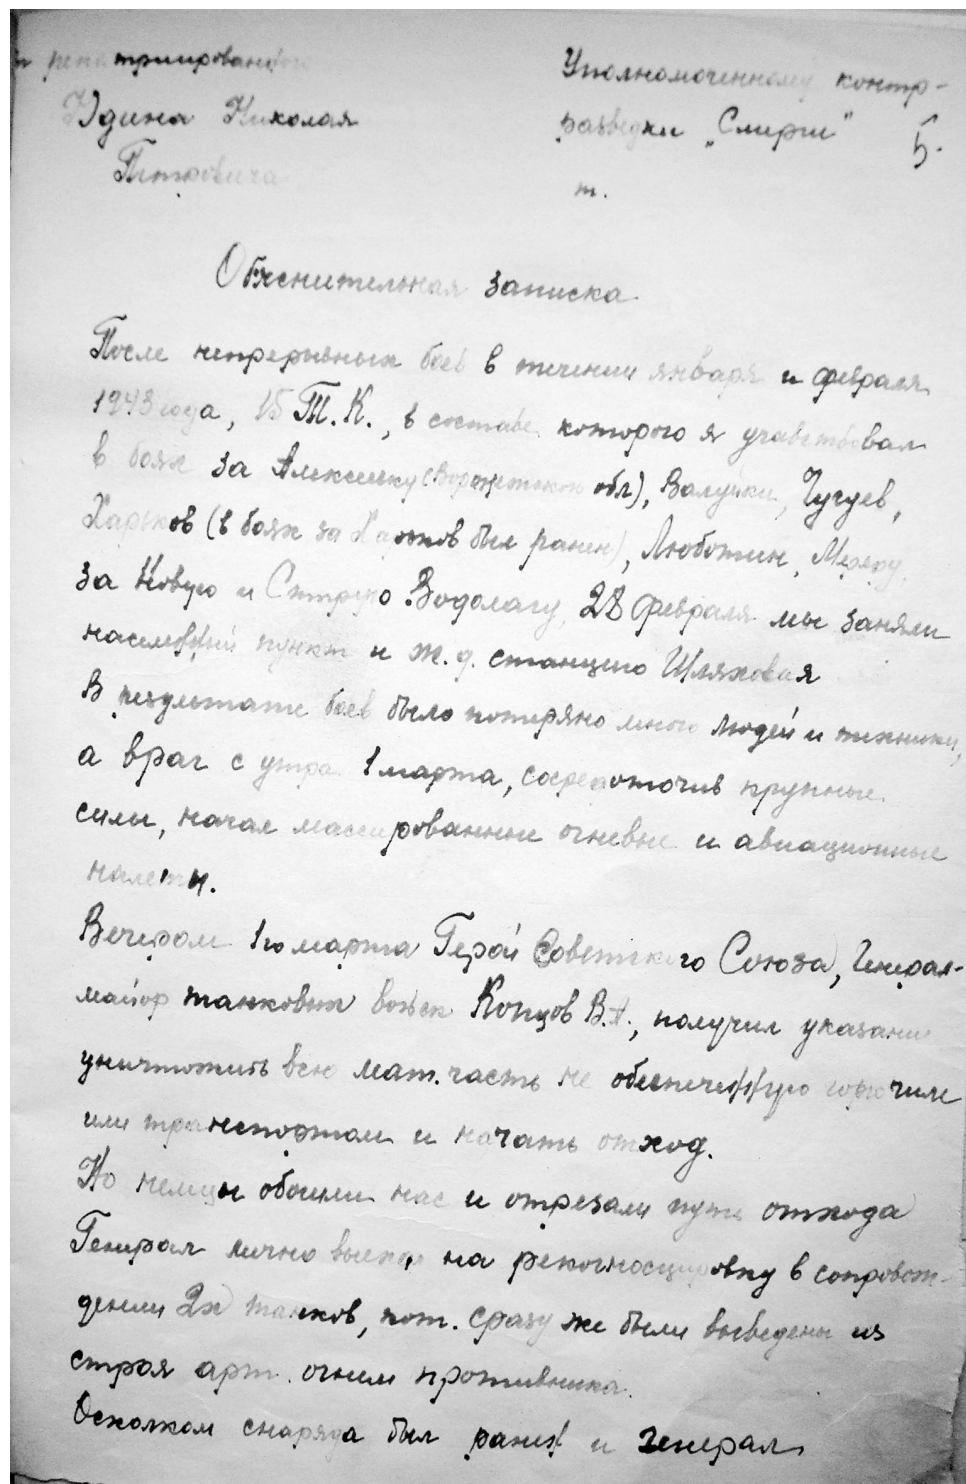 репатриированного
Юдина Николая
Петровича
Уполномоченному контр-
разведки „Смерш"
5.
т.
Объяснительная записка
После непрерывных боев в течении января и февраля
1943 года, 15 Т.К., в составе которого я учавствовал
в боях за Алексеевку (Воронежской обл), Валуйки, Чугуев,
Харьков (в боях за Харьков был ранен), Люботин, Мерефу,
за Новую и Старую Водолагу, 28 февраля мы заняли
населенный пункт и ж.д. станцию Шляховая
В результате боев было потеряно много людей и техники,
а враг с утра 1 марта, сосредоточив крупные
силы, начал массированные огневые и авиационные
налеты.
Вечером 1го марта Герой Советского Союза, Генерал-
майор танковых войск Копцов В.А., получил указание
уничтожить всю мат. часть не обеспеченную горючим
или транспортом и начать отход.
Но немцы обошли нас и отрезали пути отхода
Генерал лично выехал на рекогносцировку в сопровож-
дении 2х танков, кот. сразу же были выведены из
строя арт. огнем противника.
Осколком снаряда был ранен и генерал